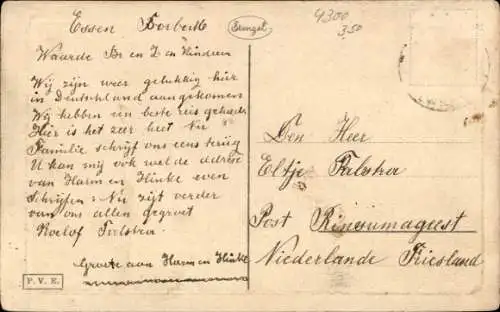 Essen Borbeck
Stempel
4300
3,50
Waarde Br en Z en Kinderen
Wij zijn weer gelukkig hier
in Deutschland aangekomen
Wij hebben een beste reis gehad
Hier is het zeer heet Nu
Familie schrijf ons eens terug
U kan mij ook wel de adress
van Harm en Hinke even
Schrijfen. Nu zijt verder
van ons allen gegroet
Roelof Talstra
Groete aan Harm en Hinke
P. V. E.
Den Heer
Eltje Talstra
Post Rinsumageest
Niederlande Friesland